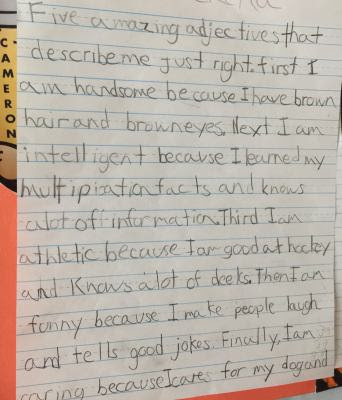 CAMERON
Five amazing adjectives that
describe me just right. first I
am handsome because I have brown
hair and brown eyes. Next I am
intelligent because I learned my
multipiration facts and knows
alot of information. Third I am
athletic because I am good at hockey
and Knows alot of deeks. Then I am
funny because I make people laugh
and tells good jokes. Finally, I am
caring because I cares for my dog and